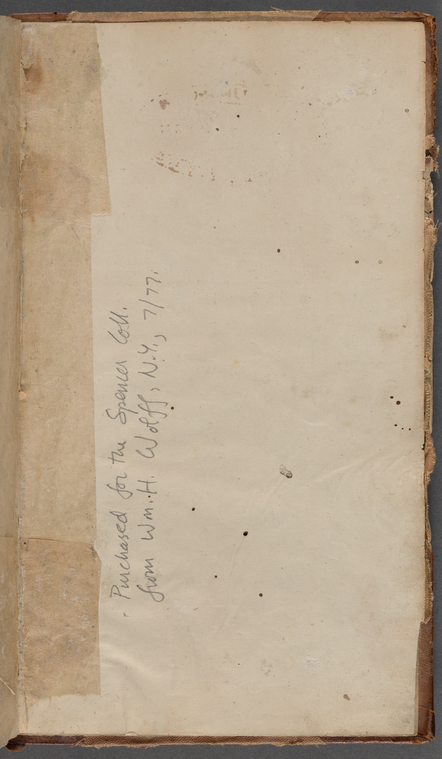 Purchased for the Spencer Coll.
from Wm. H. Wolff, N.Y., 7/77.